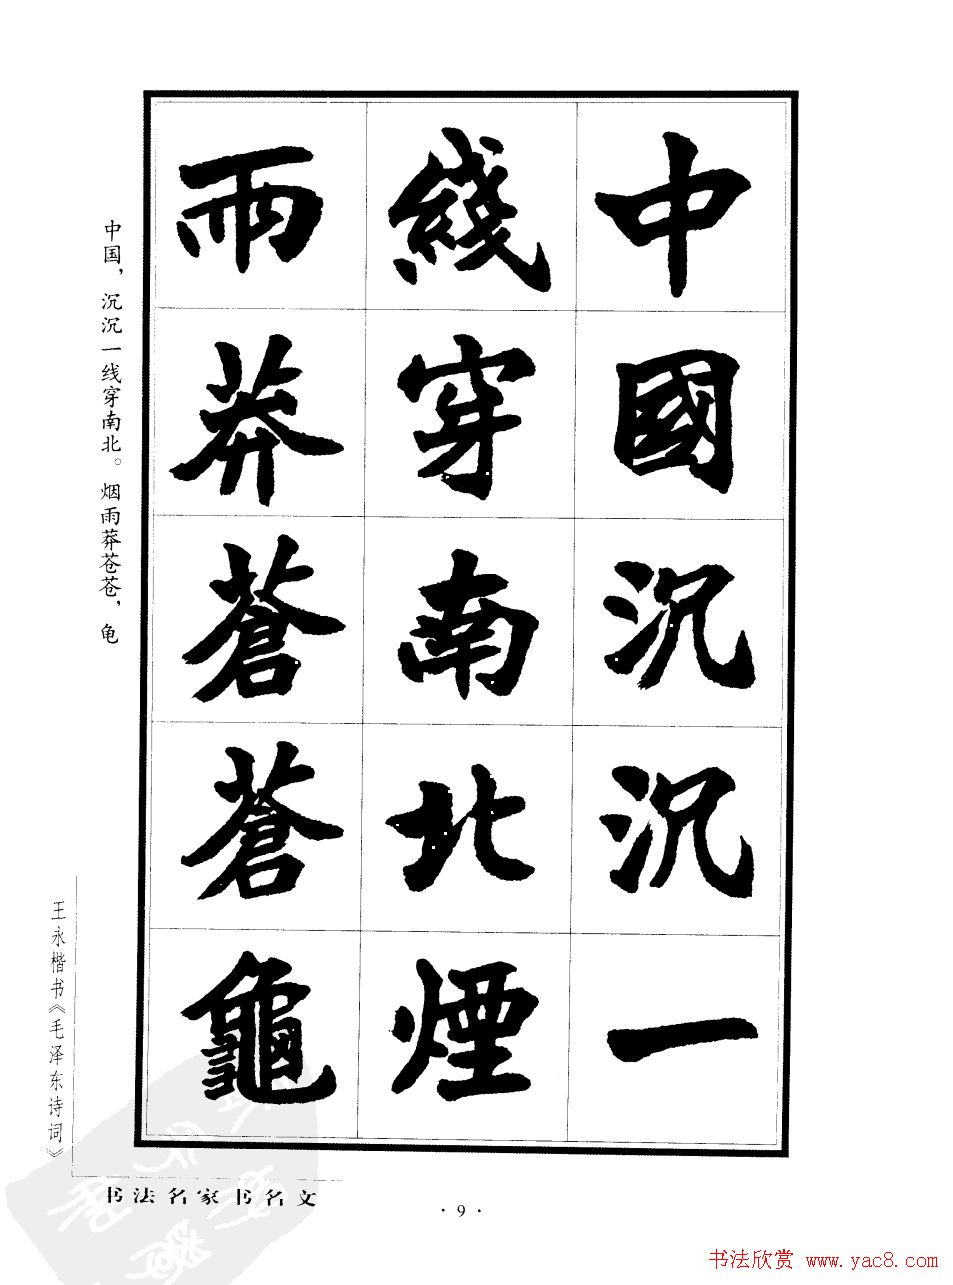 中國沉沉一
綫穿南北煙
雨莽蒼蒼龜
中国，沉沉一线穿南北。烟雨莽苍苍，龟
王永楷书《毛泽东诗词》
书法名家书名文
·9·
书法欣赏 www.yac8.com